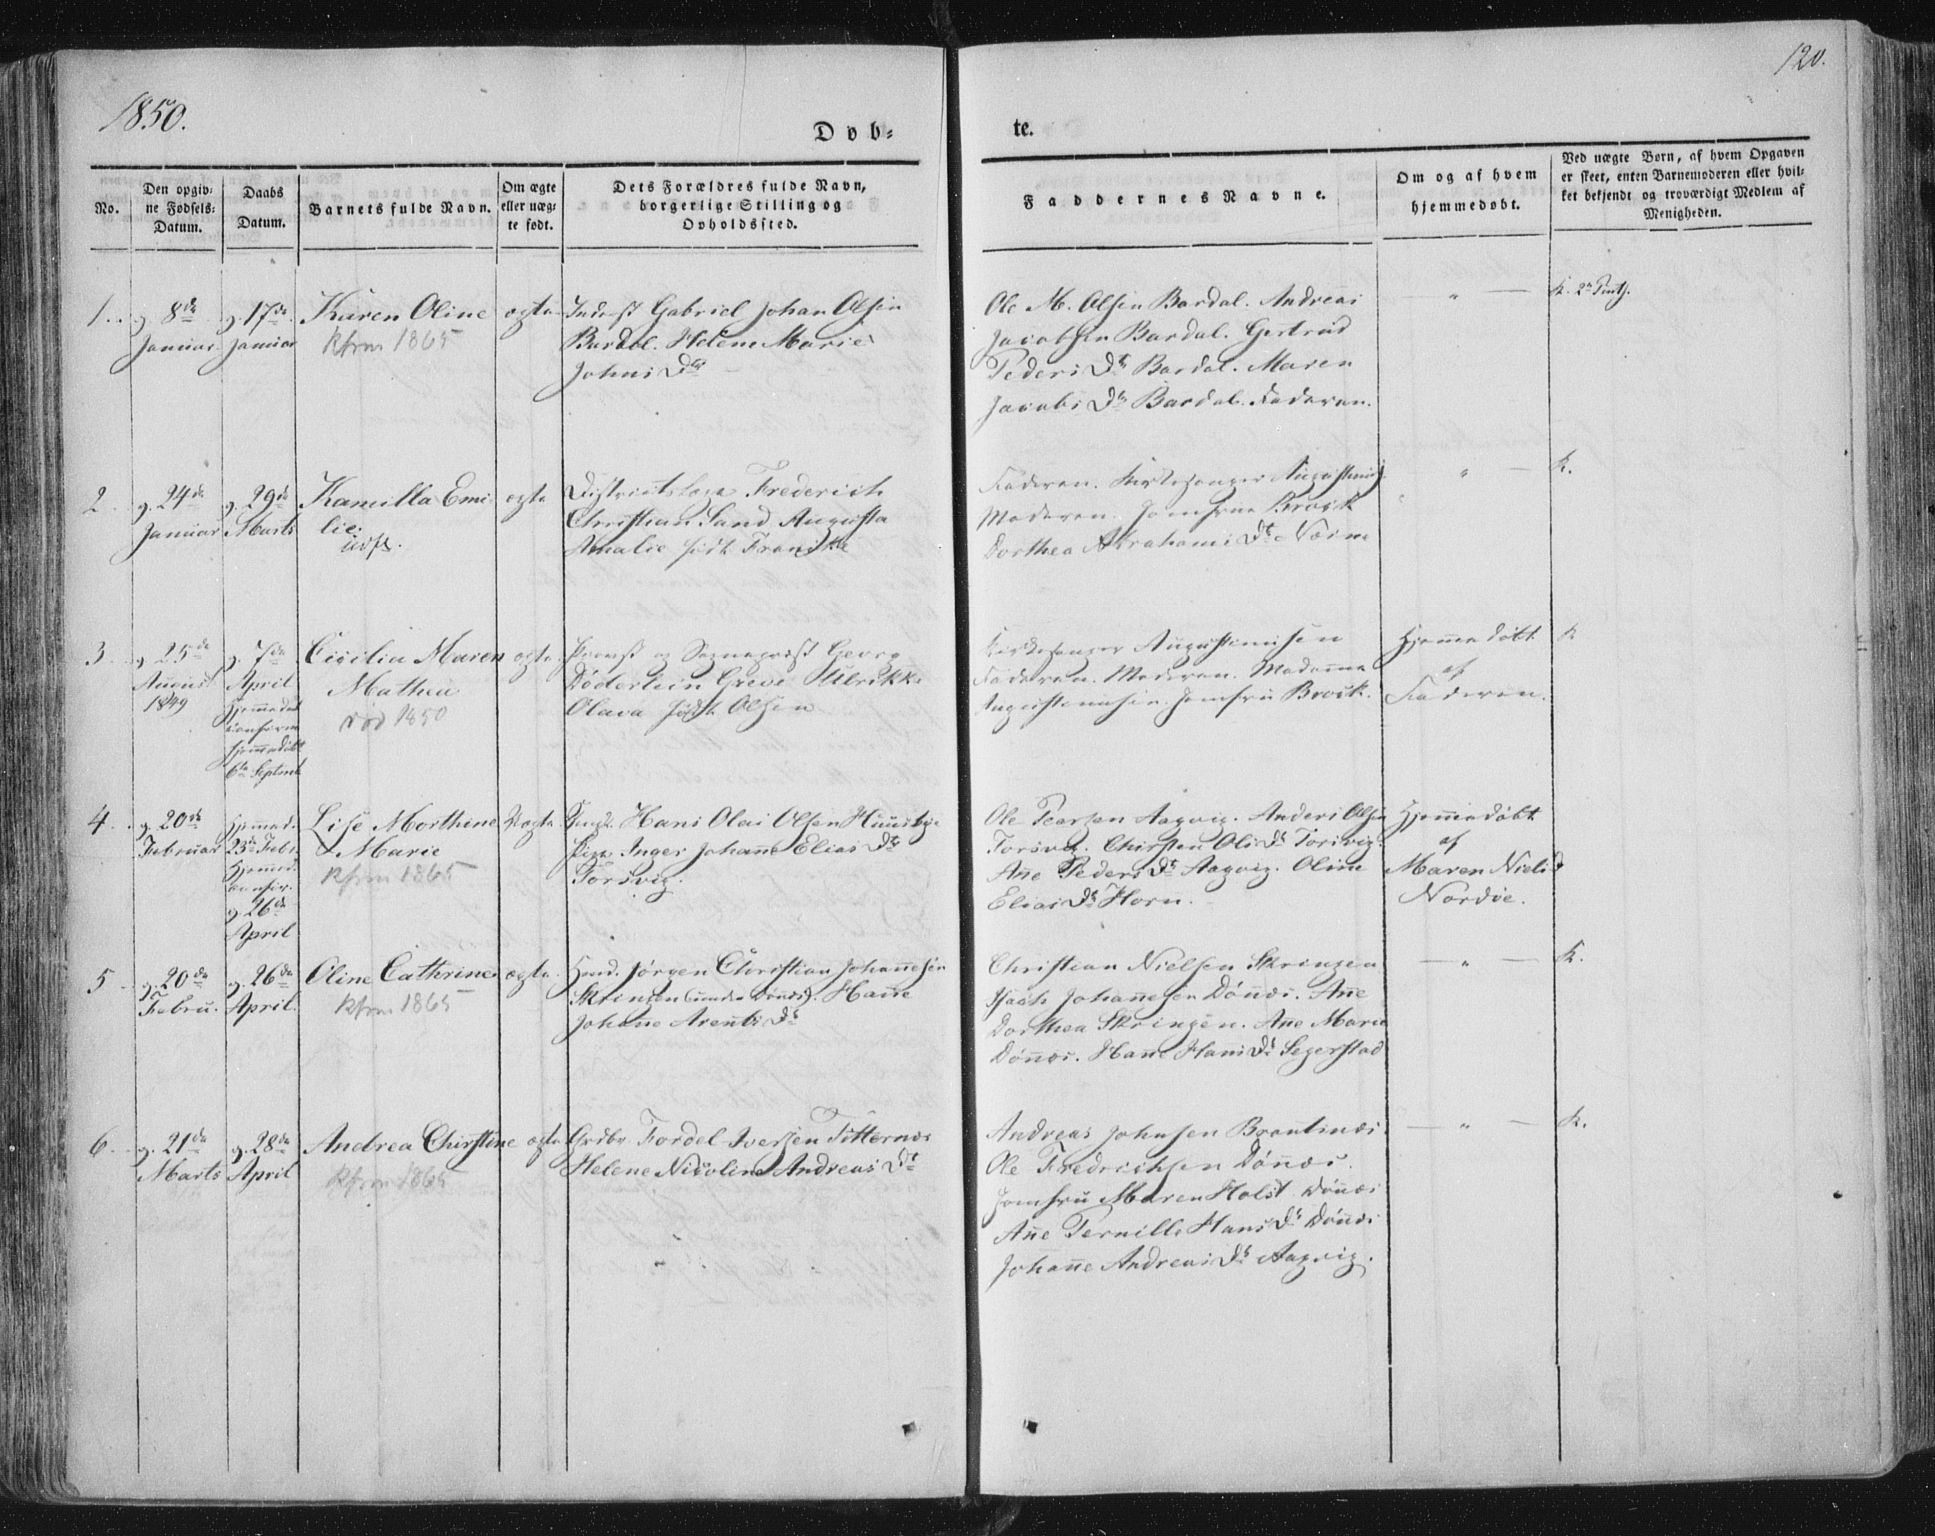 1850.
120.
Døb-
te.
No.
Den opgiv-
ne Fødsels-
Datum.
Daabs
Datum.
Barnets fulde Navn.
Om ægte
eller uæg-
te født.
Dets Forældres fulde Navn,
borgerlige Stilling og
Opholdssted.
Faddernes Navne.
Om og af hvem
hjemmedøbt.
Ved uægte Børn, af hvem Opgaven
er skeet, enten Barnemoderen eller hvil-
ket bekjendt og troværdigt Medlem af
Menigheden.
1.
8de
Januar
17de
Januar
Karen Oline
Kfrm 1865
ægte
Gabriel Johan Olsen
Bardal. Helene Marie
Johns Dtr
Ole M. Olsen Bardal. Andreas
Jacobsen Bardal. Gertrud
Peders Dtr Bardal. Maren
Jacobs Dtr Bardal. Faderen.
K.
2
24de
Januar
29de
Marts
Kamilla Emi-
lie
ægte
Districtslæge Frederich
Christian Sand Augusta
Amalie født
Faderen. Kirkesanger
Moderen. Jomfrue Brock
Dorthea Abrahams Dtr
K.
3
25de
August
1849
7de
April
Hjemmedaab
confirm
hjemmedøbt
6te Septemb
Cicilia Maren
Mathea
død 1850
ægte
Provst og Sognepræst Georg
Døderlein Greve Ulrikke
Olava født Olsen
Kirkesanger Augustinusen
Faderen. Moderen. Madamme
Augustinusen. Jomfru Brock.
Hjemmedøbt
af
Faderen.
K
4
20de
Februar
Hjemmed.
23de Febr.
Hjemmed.
confir.
26de
April
Lise Morthine
Marie
Kfrm 1865
Uægte
Ungk. Hans Olai Olsen
Pige Inger Johanne Elias Dtr
Torsvig.
Ole Pearsen Aagvig. Anders Olsen
Torsvig. Chirsten Ols Dtr Torsvig.
Ane Peders Dtr Aagvig. Oline
Elias Dtr Horn.
Hjemmedøbt
af
Maren Niels D
Nordvie.
5
20de
Febru.
26de
April.
Oline Cathrine
Kfrm 1865
ægte
Husm. Jørgen Christian Johannesen
Skringen (under Dønæs). Hanne
Johanne Arents Dtr
Christian Nielsen Skringen
Isach Johannesen Dønæs. Ane
Dorthea Skringen. Ane Marie
Dønæs. Hanne Hans Dtr Segerstad
K.
6
21de
Marts
28de
April
Andrea Chirstine
Kfrm 1865
ægte
Grdbr Fordel Iversen Titternes
Helene Nicoline Andreas Dtr
Andreas Johnsen Brantnæs.
Ole Fredrichsen Dønæs.
Jomfru Maren Holst Dønæs
Ane Pernille Hans Dtr Dønæs
Johanne Andreas Dtr Aagvig.
K.